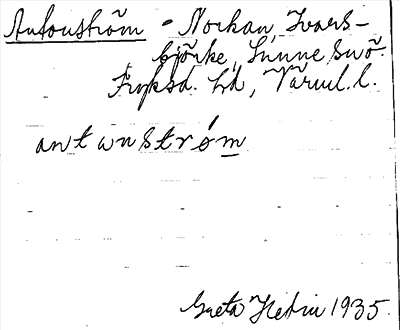 Antonström - Norkan, Ivars-
björke, Sunne sn ö.
Fryksd. hd, Värml. l.
antωnström
Greta Hedin 1935.